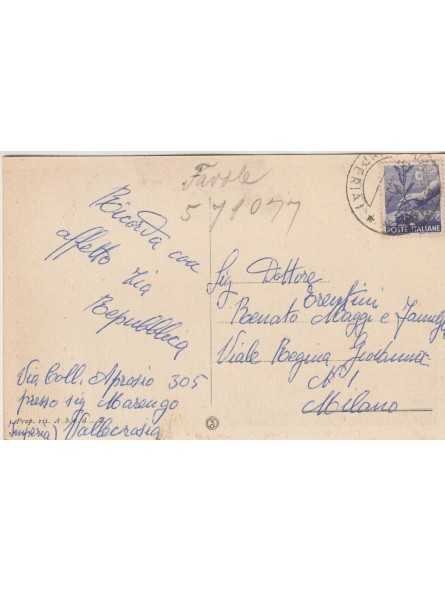 Favole
571077
Ricorda con
affetto zia
Repubblica
Via Coll. Aprosio 305
presso sig Marengo
Imperia) Vallecrosia
Prop. ris. A.
3
IMPERIA
POSTE ITALIANE
Sig Dottore
Erenfini
Renato Maggi e Family
Viale Regina Giovanna
N° 1
Milano